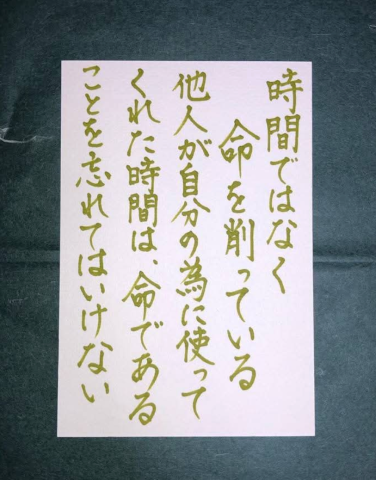 時間ではなく
命を削っている
他人が自分の為に使って
くれた時間は、命である
ことを忘れてはいけない